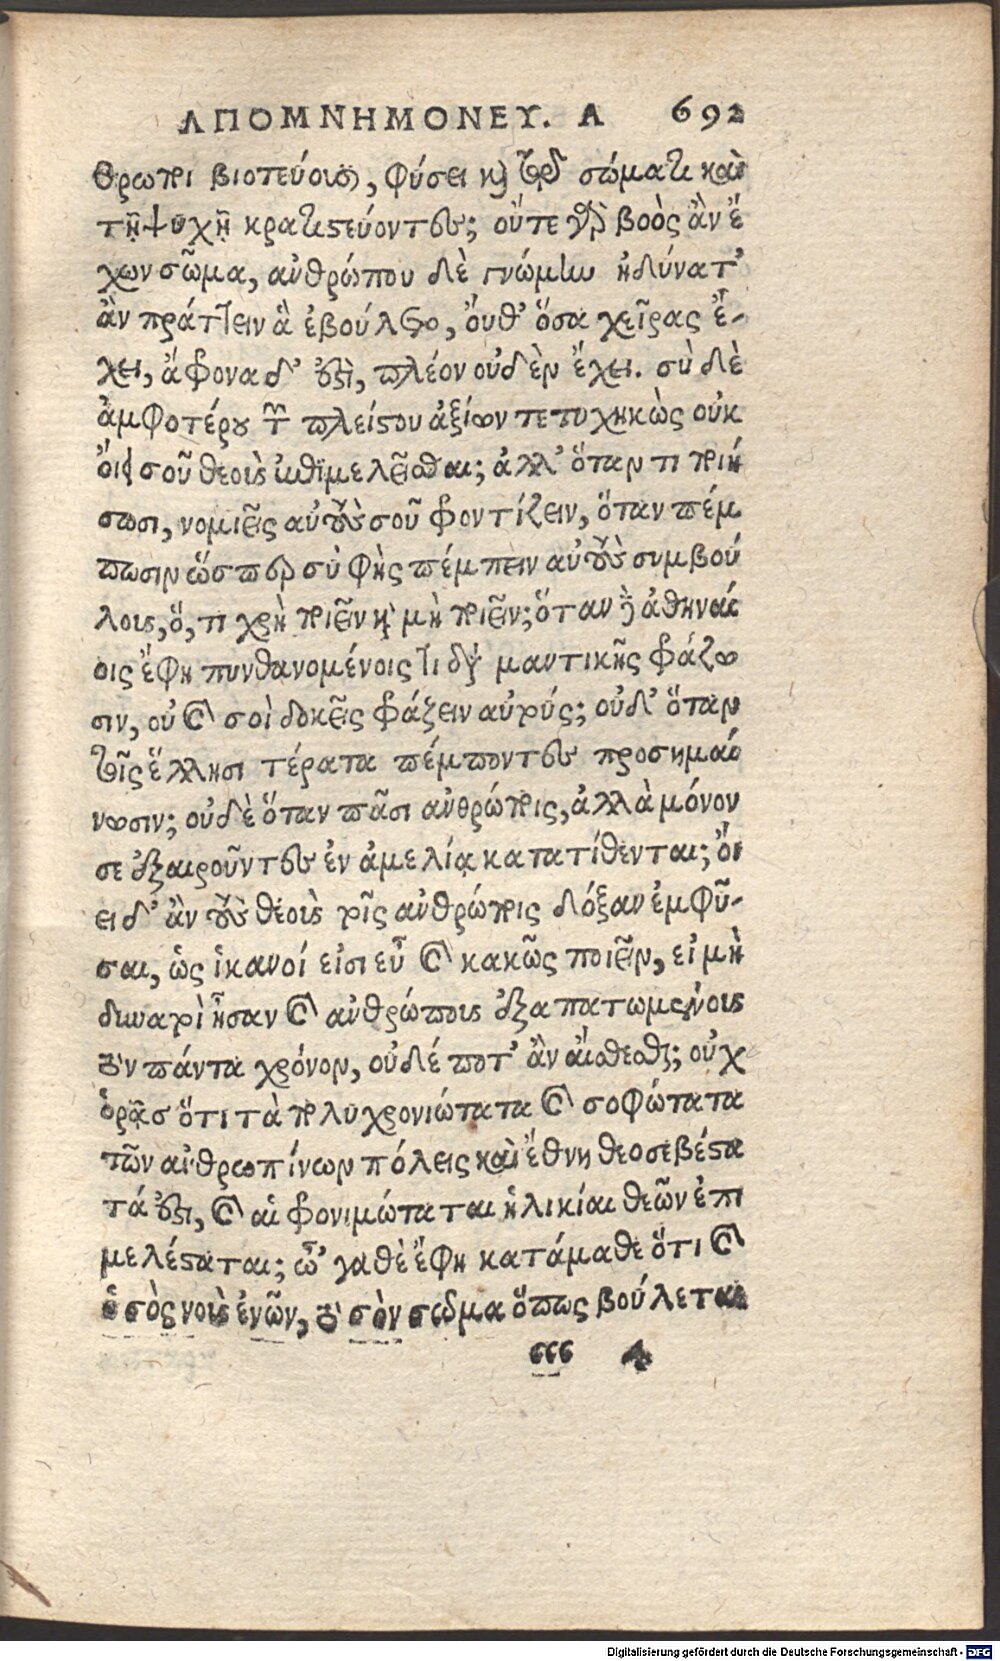 ΑΠΟΜΝΗΜΟΝΕΥ. Α 692
θρωποι βιοτεύουσι, φύσει καὶ τῷ σώματι καὶ
τῇ ψυχῇ κρατιστεύοντες; οὔτε γὰρ βοὸς ἂν ἔ
χων σῶμα, ἀνθρώπου δὲ γνώμην ἠδύνατ'
ἂν πράττειν ἃ ἐβούλετο, ὄυθ' ὅσα χεῖρας ἔ-
χει, ἄφρονα δ' ἐστὶ, πλέον οὐδὲν ἔχει. σὺ δὲ
ἀμφοτέρων τῶν πλείστου ἀξίων τετυχηκὼς οὐκ
ὄιει σοῦ θεοὺς ἐπιμελεῖσθαι; ἀλλ' ὅταν τι ποιή
σωσι, νομιεῖς αὐτοὺς σοῦ φροντίζειν, ὅταν πέμ
πωσιν ὥσπερ σὺ φῂς πέμπειν αὐτοὺς συμβού
λους, ὅ, τι χρὴ ποιεῖν καὶ μὴ ποιεῖν; ὅταν δὲ ἀθηναί
οις ἔφη πυνθανομένοις τι διὰ μαντικῆς φράζω
σιν, οὐ καὶ σοὶ δοκεῖς φράζειν αὐτούς; οὐδ' ὅταν
τοῖς ἕλλησι τέρατα πέμποντες προσημαί
νωσιν; οὐδὲ ὅταν πᾶσι ἀνθρώποις, ἀλλὰ μόνον
σε ἐξαιροῦντες ἐν ἀμελίᾳ κατατίθενται; ὄι
ει δ' ἂν τοὺς θεοὺς τοῖς ἀνθρώποις δόξαν ἐμφῦ-
σαι, ὡς ἱκανοί εἰσι εὖ καὶ κακῶς ποιεῖν, εἰ μὴ
δυνατοὶ ἦσαν καὶ ἀνθρώπους ἐξαπατωμένους
τὸν πάντα χρόνον, οὐδέ ποτ' ἂν αἰσθέσθαι; οὐχ
ὁρᾷς ὅτι τὰ πολυχρονιώτατα καὶ σοφώτατα
τῶν ἀνθρωπίνων πόλεις καὶ ἔθνη θεοσεβέστα
τά ἐστι, καὶ αἱ φρονιμώταται ἡλικίαι θεῶν ἐπι
μελέσταται; ὦ' γαθὲ ἔφη κατάμαθε ὅτι καὶ
ὁ σὸς νοῦς ἐνὼν, τὸ σὸν σῶμα ὅπως βούλεται
ϲϲϲ 4
Digitalisierung gefördert durch die Deutsche Forschungsgemeinschaft - DFG